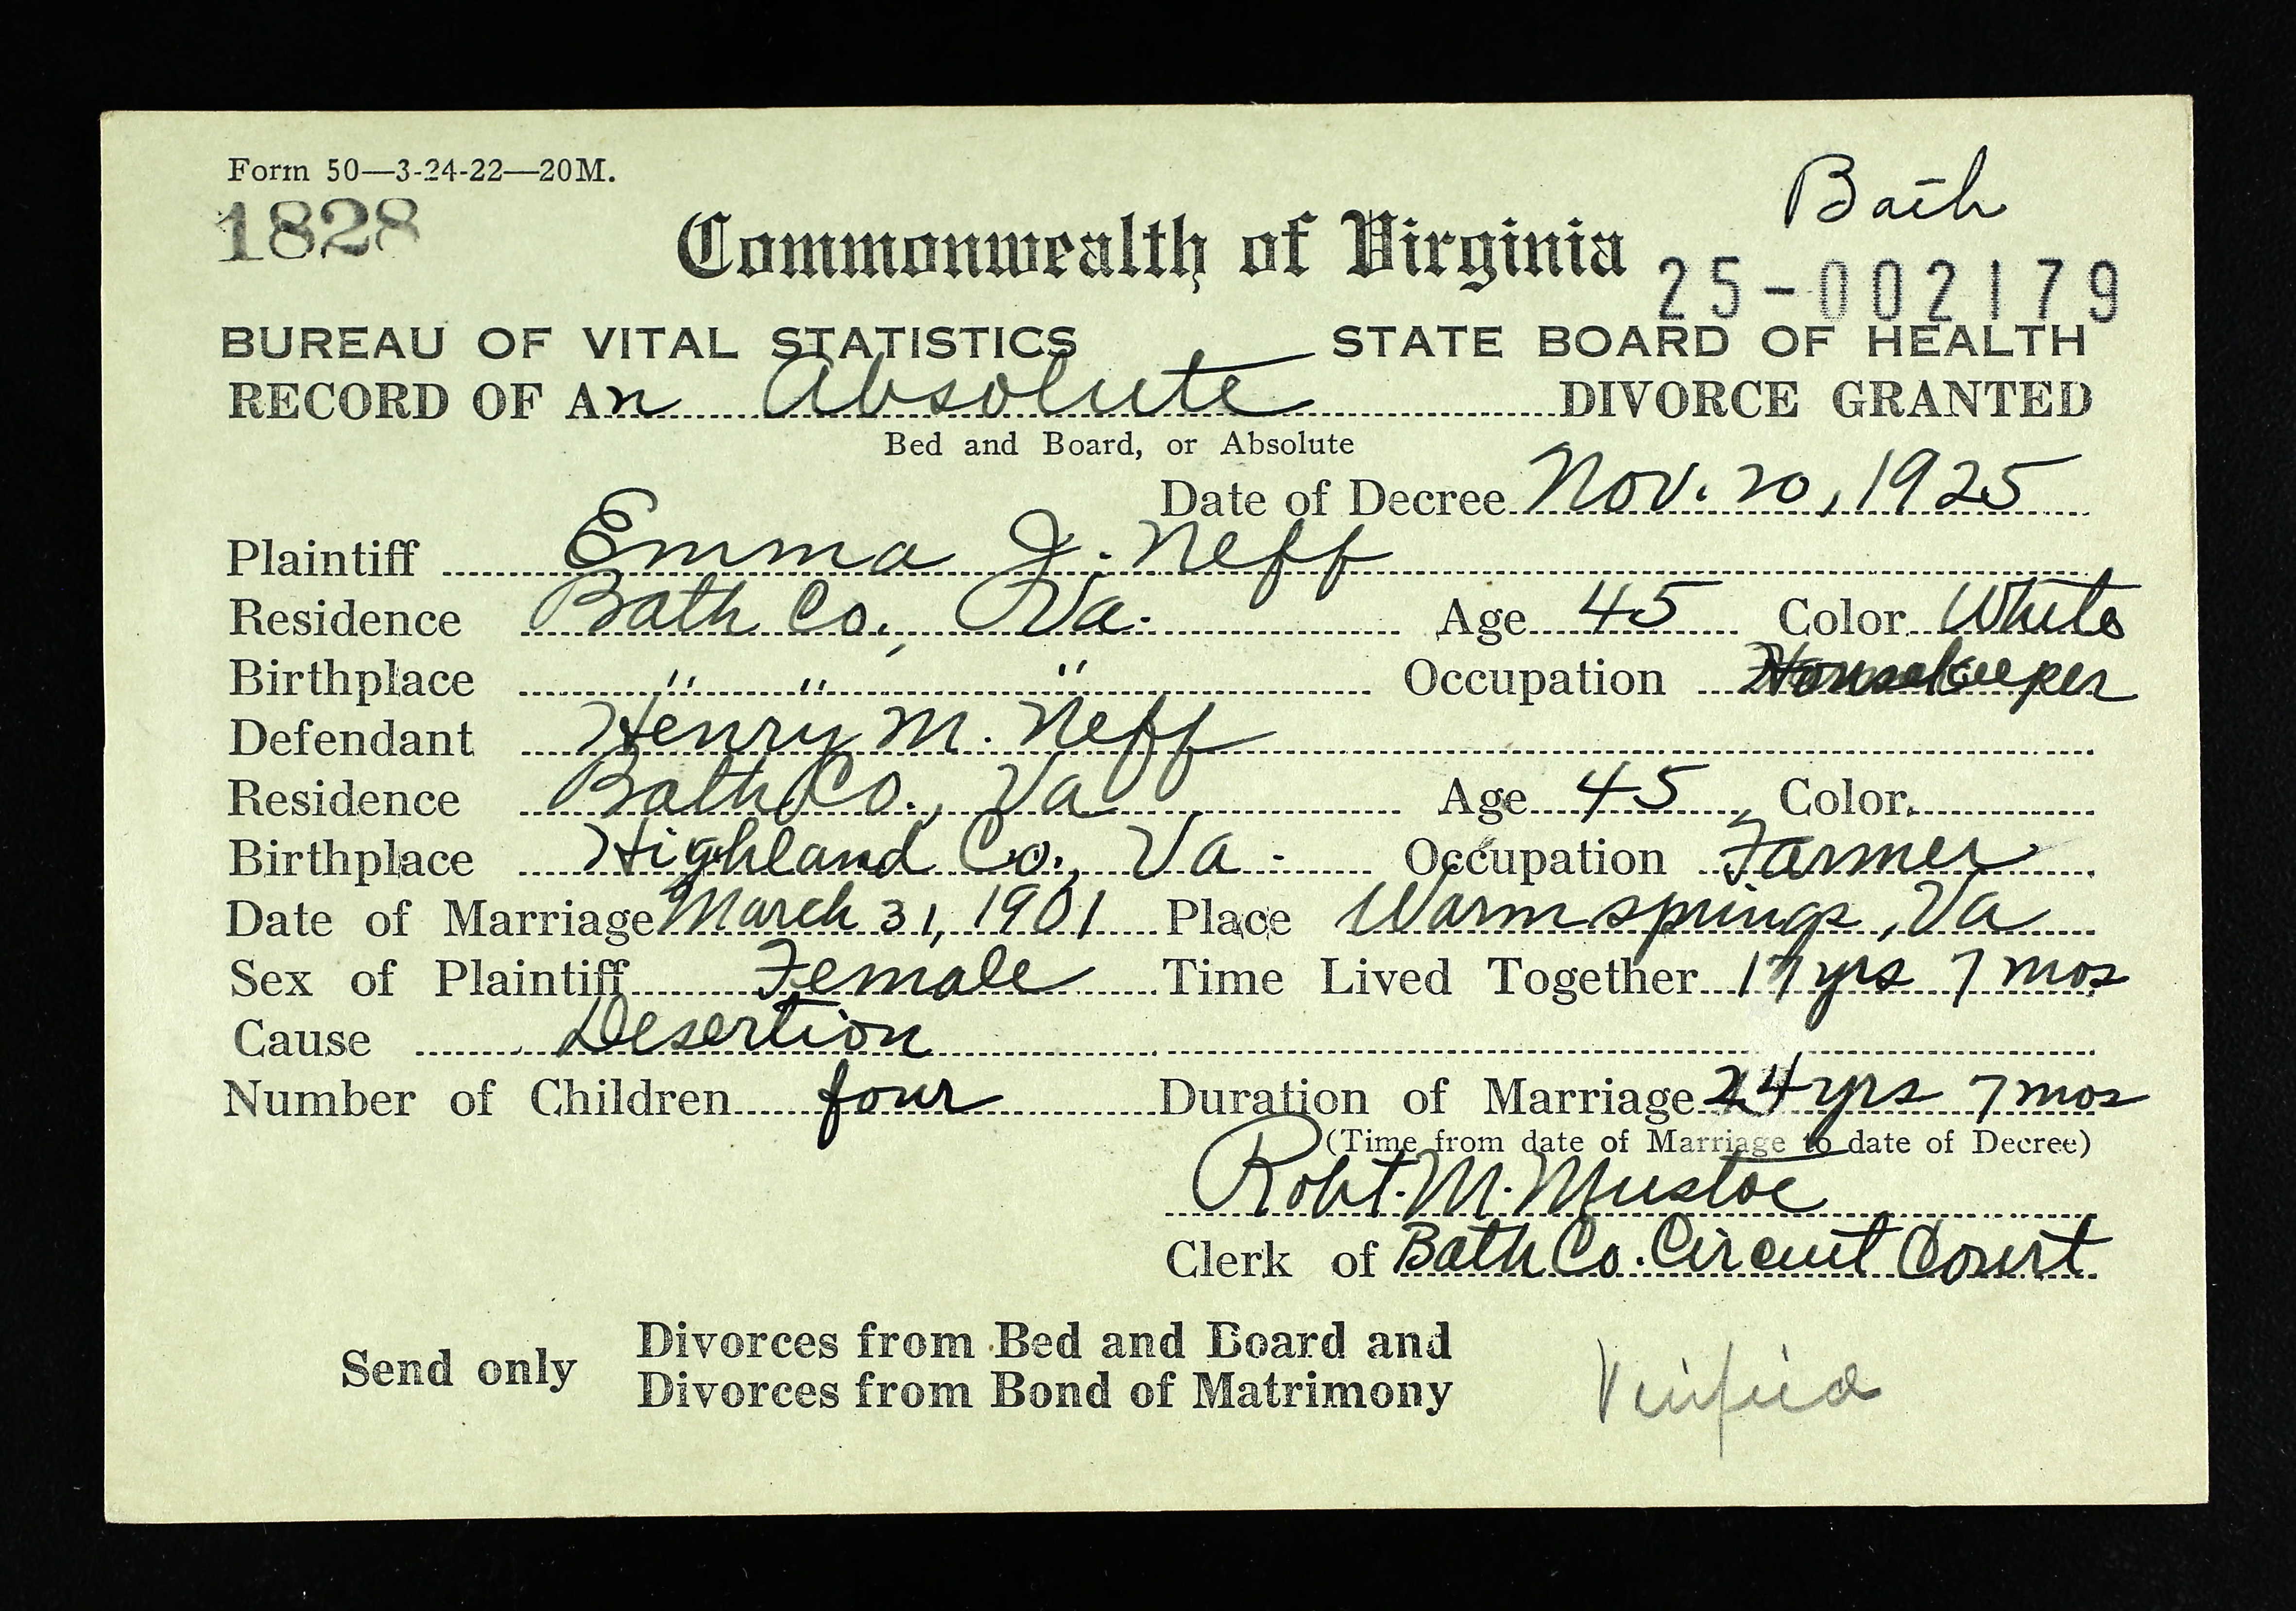 Form 50—3-24-22—20M.
Bath
1828
Commonwealth of Virginia
25-002179
BUREAU OF VITAL STATISTICS STATE BOARD OF HEALTH
RECORD OF An Absolute DIVORCE GRANTED
Bed and Board, or Absolute
Date of Decree Nov. 20, 1925
Plaintiff Emma J. Neff
Residence Bath Co., Va. Age 45 Color White
Birthplace " " " Occupation Housekeeper
Defendant Henry M. Neff
Residence Bath Co., Va Age 45 Color
Birthplace Highland Co., Va. Occupation Farmer
Date of Marriage March 31, 1901 Place Warmsprings, Va
Sex of Plaintiff Female Time Lived Together 17 yrs 7 mos
Cause Desertion
Number of Children four Duration of Marriage 24 yrs 7 mos
(Time from date of Marriage to date of Decree)
Robt. M. Mustoe
Clerk of Bath Co. Circuit Court
Send only Divorces from Bed and Board and
Divorces from Bond of Matrimony
Verified